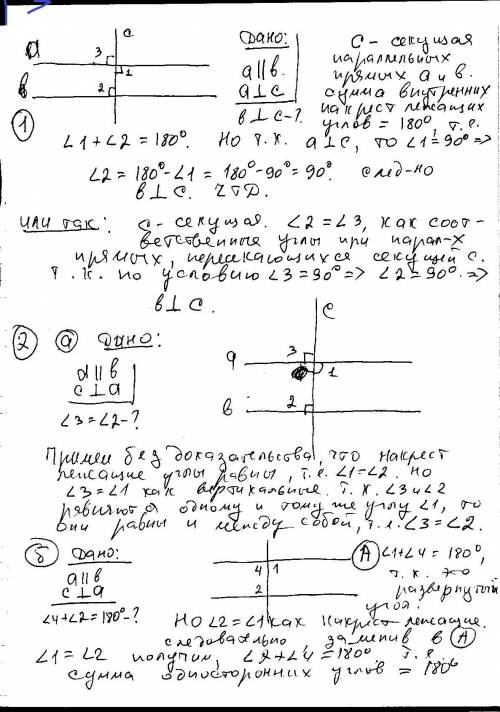 c
Дано:
C - секущая
a
3
параллельных
1
a || в.
прямых а и в.
в
2
a ⊥ c
сумма внутренних
①
в ⊥ с - ?
накрест лежащих
углов = 180°, т.е.
∠1 + ∠2 = 180°. Но т.к. a ⊥ c, то ∠1 = 90° =>
∠2 = 180° - ∠1 = 180° - 90° = 90°. след-но
в ⊥ с. ЧТД.
или так: С - секущая. ∠2 = ∠3, как соот-
ветственные углы при парал-х
прямых, пересекающихся секущей с.
Т.к. по условию ∠3 = 90° => ∠2 = 90°. =>
в ⊥ с.
② ⓐ Дано:
c
a || в
c ⊥ a
∠3 = ∠2 - ?
a
3
1
в
2
Примем без доказательства, что накрест
лежащие углы равны, т.е. ∠1 = ∠2. Но
∠3 = ∠1 как вертикальные. Т.к. ∠3 и ∠2
равны одному и тому же углу ∠1, то
они равны и между собой, т.е. ∠3 = ∠2.
ⓑ Дано:
a || в
c ⊥ a
∠4 + ∠2 = 180° - ?
4
1
2
Ⓐ ∠1 + ∠4 = 180°,
т.к. это
развернутый
угол.
Но ∠2 = ∠1 как накрест лежащие.
следовательно, заменив в Ⓐ
∠1 = ∠2 получим, ∠2 + ∠4 = 180° т.е.
сумма односторонних углов = 180°